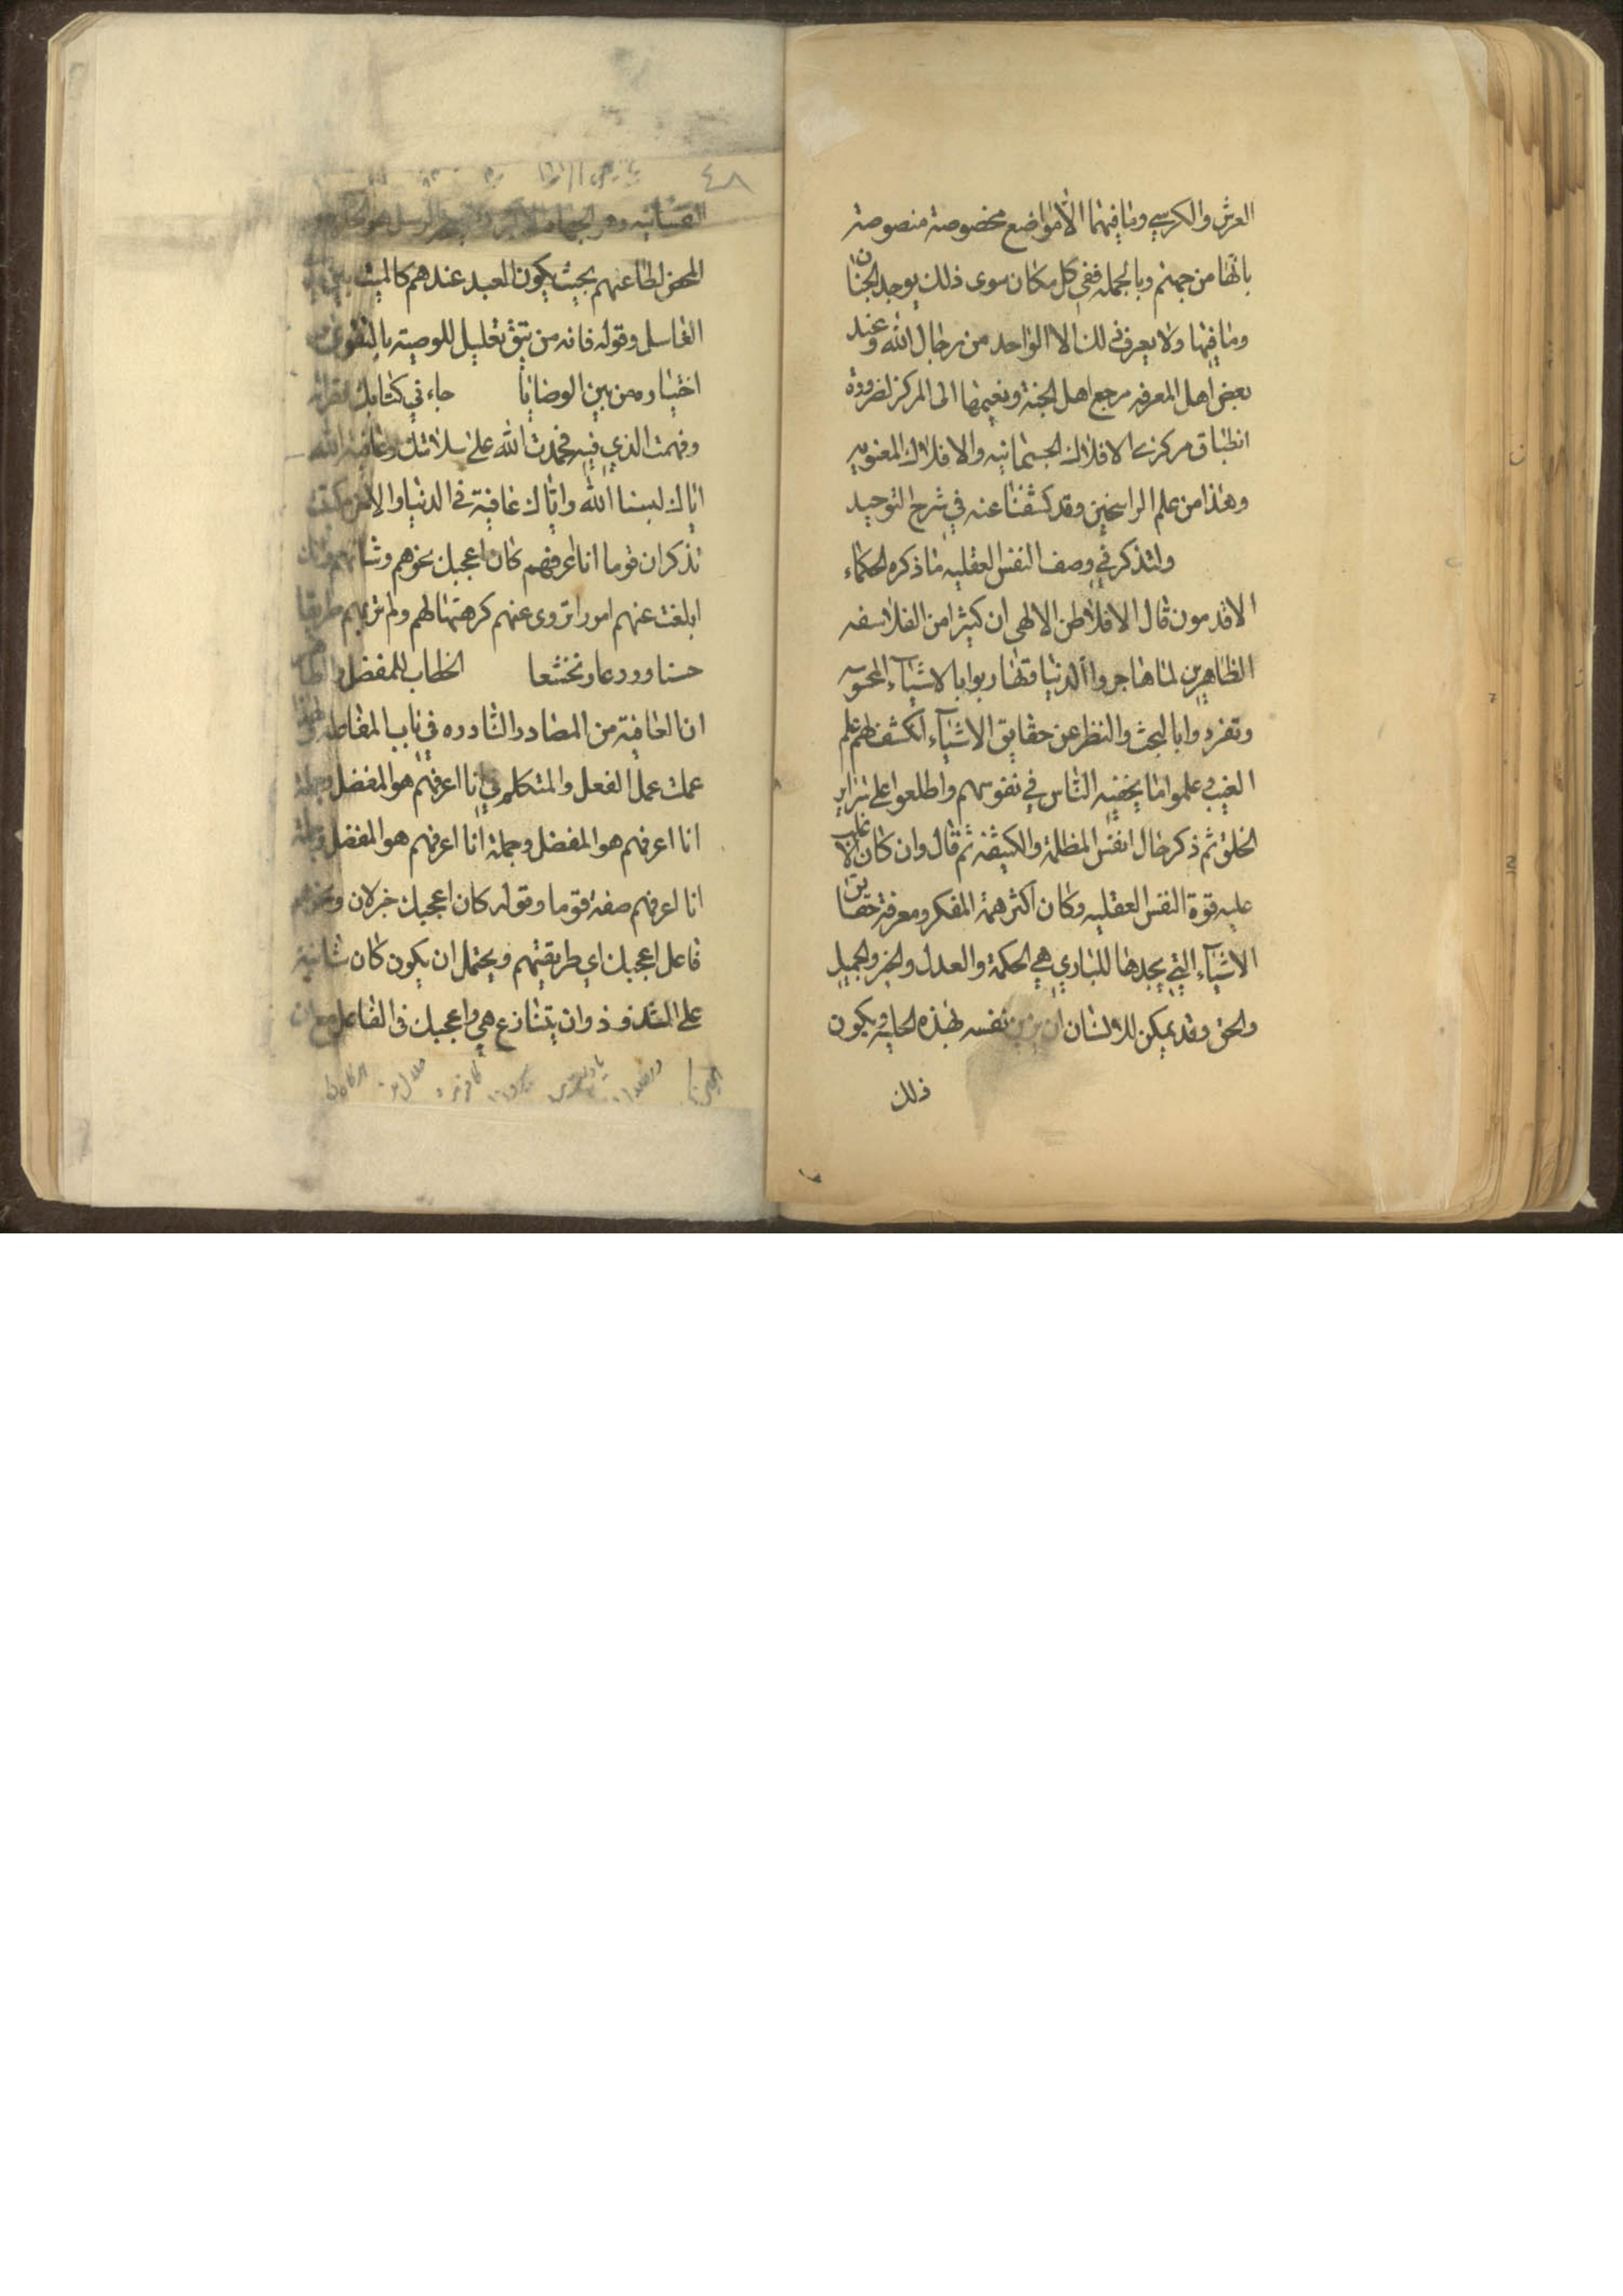 العرش والكرسي وما فيهما الا مواضع مخصوصة منصوصة
بانها من جهنم وبالجمله ففي كل مكان سوى ذلك يوجد الجنان
وما فيها ولا يعرف ذلك الا الواحد من رجال الله وعند
بعض اهل المعرفه مرجع اهل الجنة ونعيمها الى المركز لضرورة
انطباق مركزي الافلاك الجسمانيه والافلاك المعنويه
وهذا من علم الراسخين وقد كشفنا عنه في شرح التوحيد
ولنذكر في وصف النفس العقليه ما ذكره الحكماء
الاقدمون قال الافلاطن الالهي ان كثيرا من الفلاسفه
الظاهرين لما هاجروا الدنيا وتهاربوا بالاشياء المحسوسه
وتفردوا بالبحث والنظر عن حقايق الاشياء انكشف لهم علم
الغيب وعلموا ما يخفيه الناس في نفوسهم واطلعوا على سراير
الخلق ثم ذكر حال انفس المظلمة والكثيفه ثم قال وان كان الاغلب
عليه قوة النفس العقليه وكان اكثر همة المفكر ومعرفة حقايق
الاشياء التي يجدها للباري هي الحكمة والعدل والخير والجميل
والحق وقد يمكن للانسان ان يزين نفسه بهذه الحليه ويكون
ذلك
٤٨
المحض لطاعتهم بحيث يكون العبد عندهم كالميت بين يدي
الغاسل وقوله فانه من يتق تعليل للوصية بالتقوى
اختياره من بين الوصايا جاءني كتابك فقراته
وفهمت الذي فيه فحمدت الله على سلامتك وعافية الله
اياك لبسنا الله واياك عافيته في الدنيا والاخرة كتبت
تذكر ان قوما انا اعرفهم كان اعجبك نحوهم وشانهم وانك
ابلغت عنهم امورا تروى عنهم كرهتها لهم ولم تر بهم طريقا
حسنا وورعا وتخشعا الخطاب للمفضل
ان العافية من المصادر النادره في باب المفاعلة
عمك عمل الفعل والمتكلم في انا اعرفهم هو المفضل وجملة
انا اعرفهم هو المفضل وجملة انا اعرفهم هو المفضل وجملة
انا اعرفهم صفة قوما وقوله كان اعجبك خبر لان ونحوهم
فاعل اعجبك اي طريقتهم ويحتمل ان يكون كان شانية
على الشذوذ وان يتنازع هي واعجبك في الفاعل مع ان